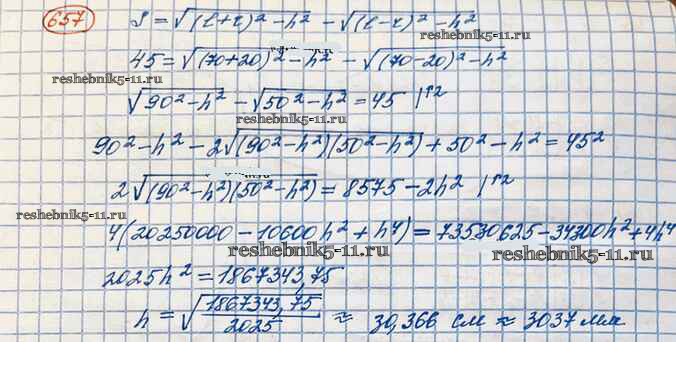 657 S = √(l+r)² - h² - √(l-r)² - h²
45 = √(70+20)² - h² - √(70-20)² - h²
reshebnik5-11.ru reshebnik5-11.ru
√90² - h² - √50² - h² = 45 |↑²
reshebnik5-11.ru
90² - h² - 2√(90² - h²)(50² - h²) + 50² - h² = 45²
2√(90² - h²)(50² - h²) = 8575 - 2h² |↑²
reshebnik5-11.ru
4(20250000 - 10600h² + h⁴) = 73530625 - 34300h² + 4h⁴
reshebnik5-11.ru reshebnik5-11.ru
2025h² = 1867343,75
h = √1867343,75/2025 ≈ 30,366 см ≈ 3037 мм
reshebnik5-11.ru